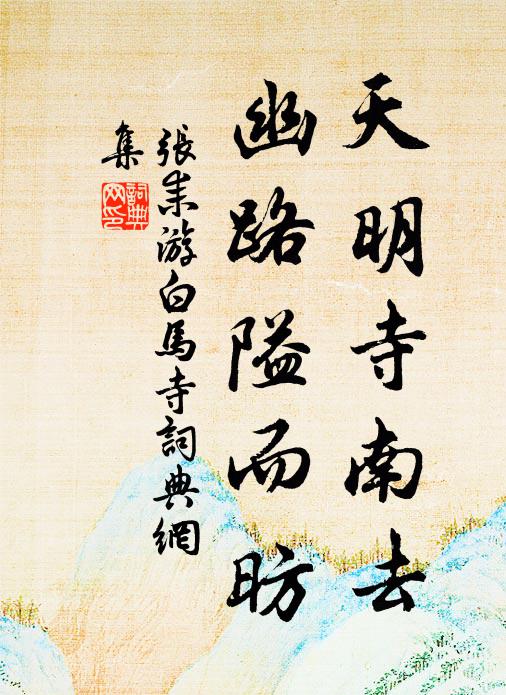 天明寺南去
幽路隘而昉
張耒游白馬寺詞典網
集
詞典网印